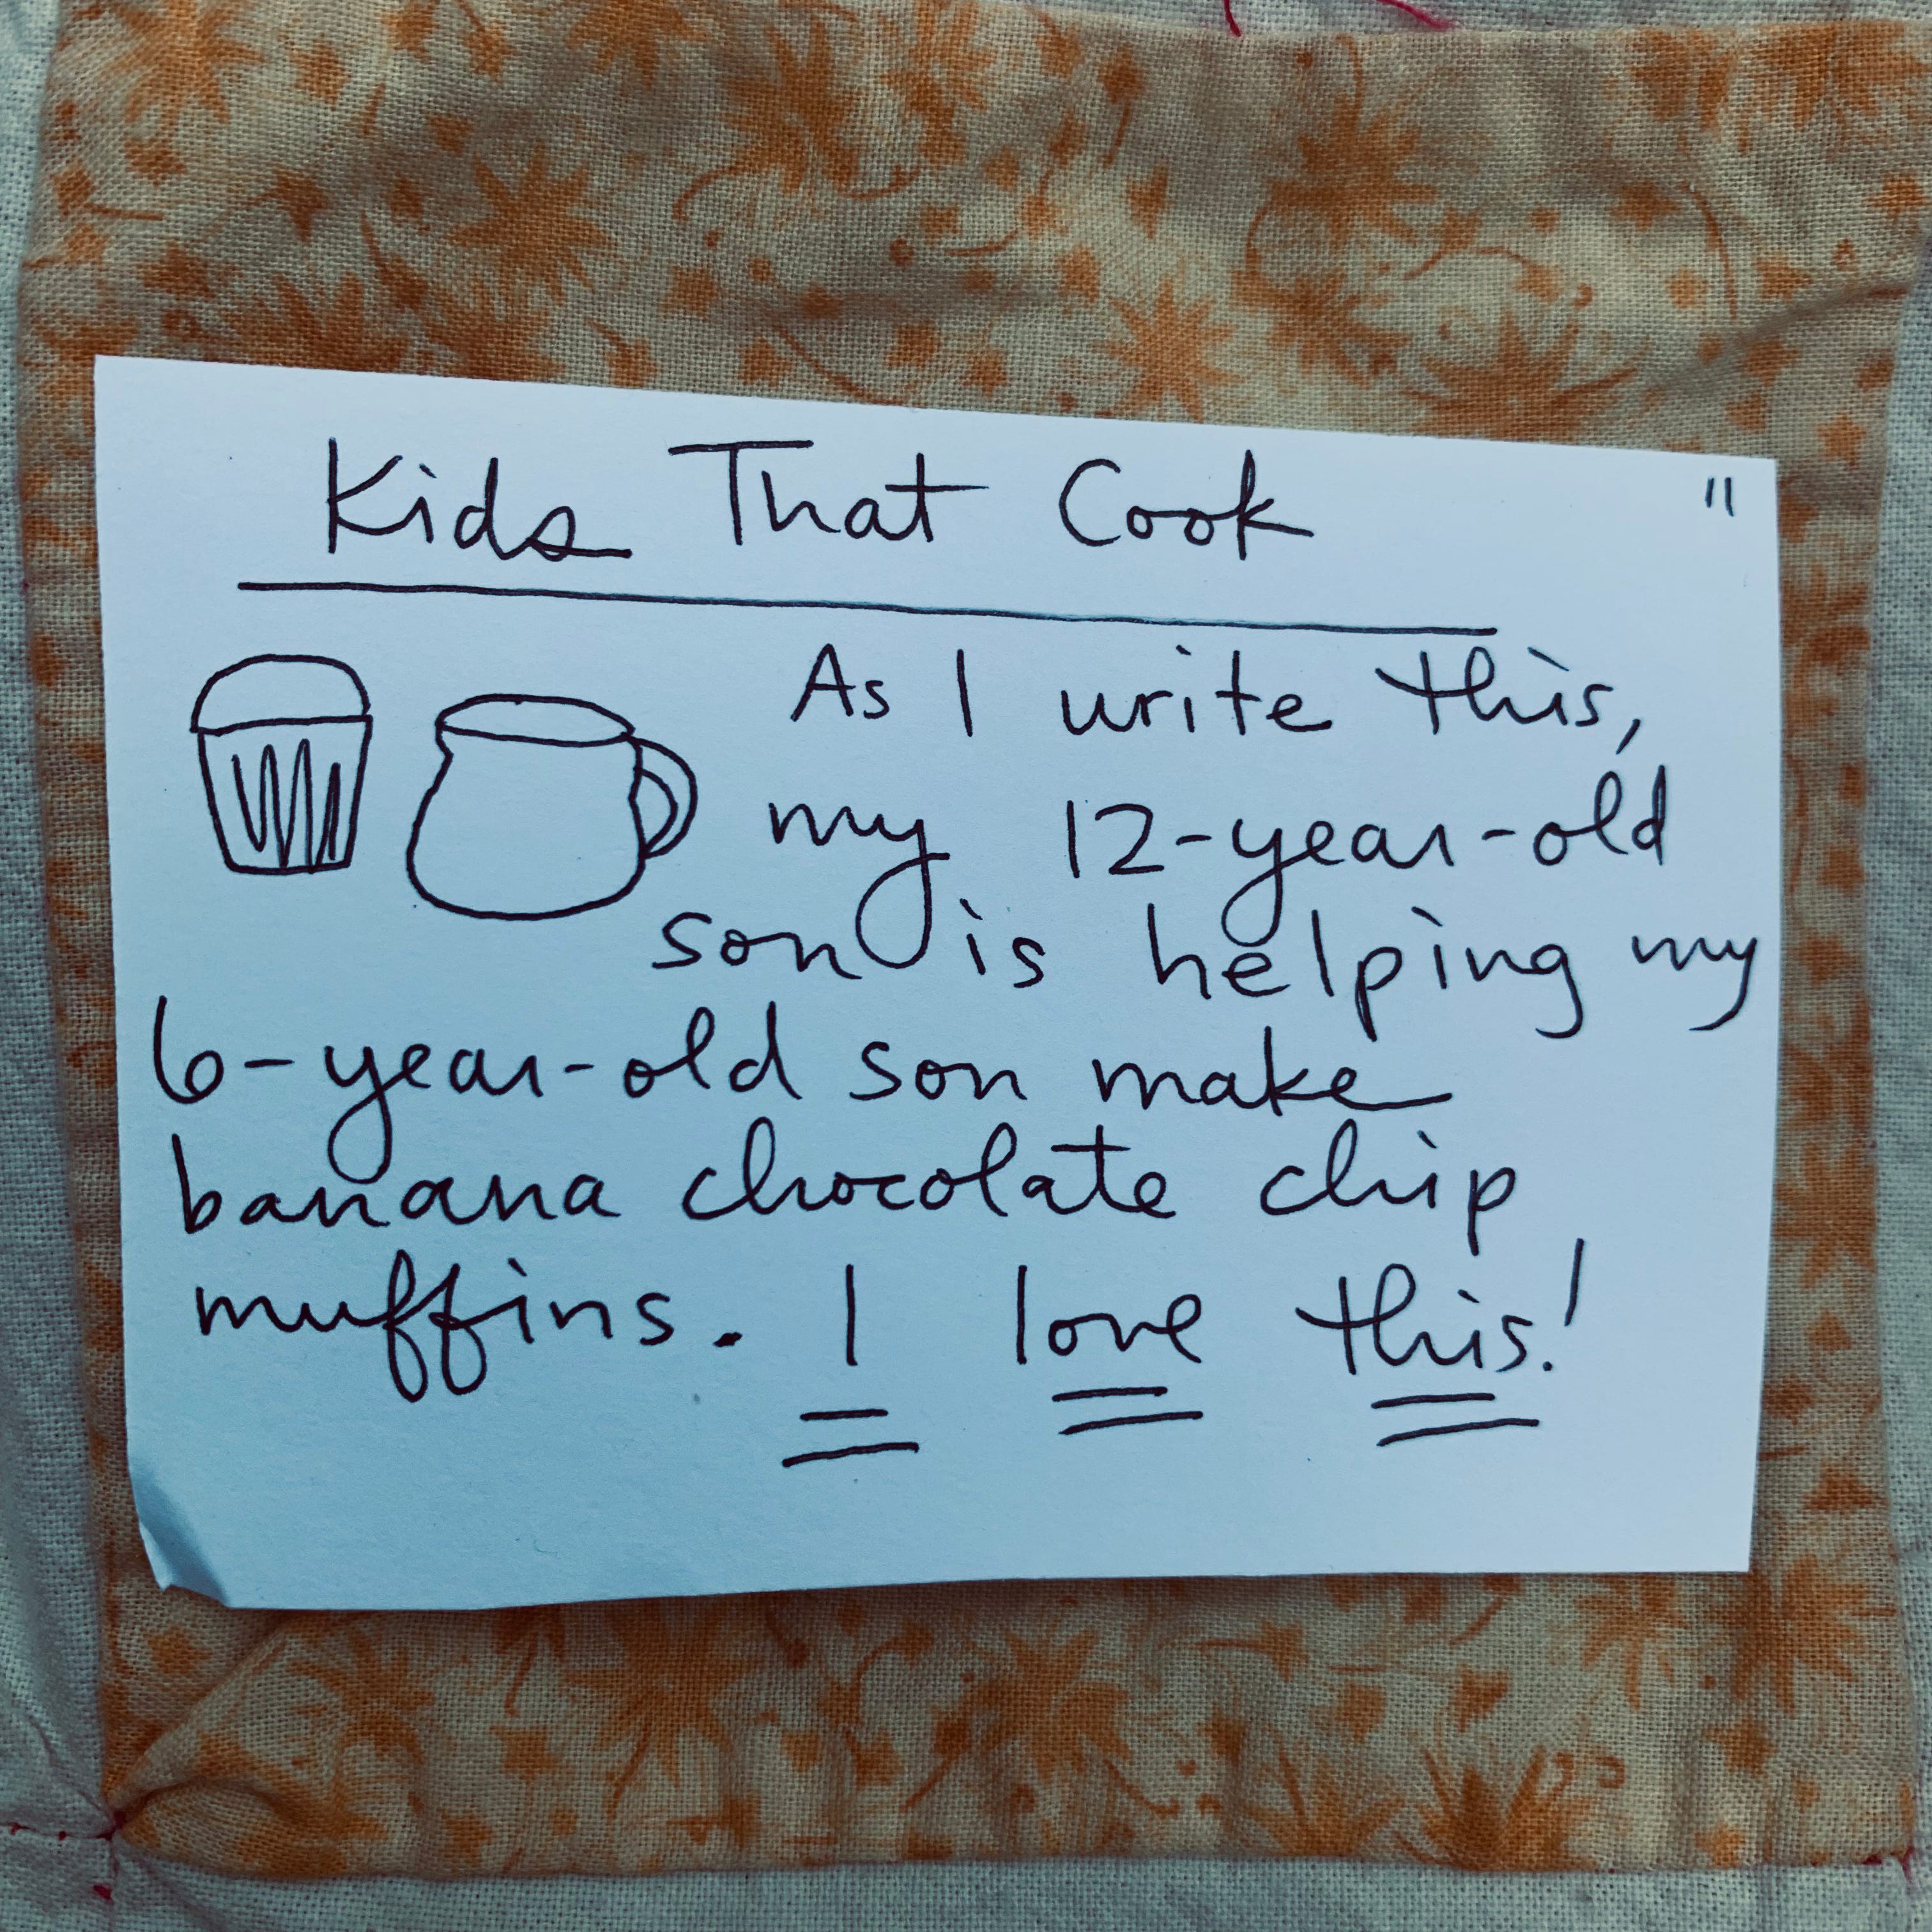 Kids That Cook 11
As I write this,
my 12-year-old
son is helping my
6-year-old son make
banana chocolate chip
muffins. I love this!